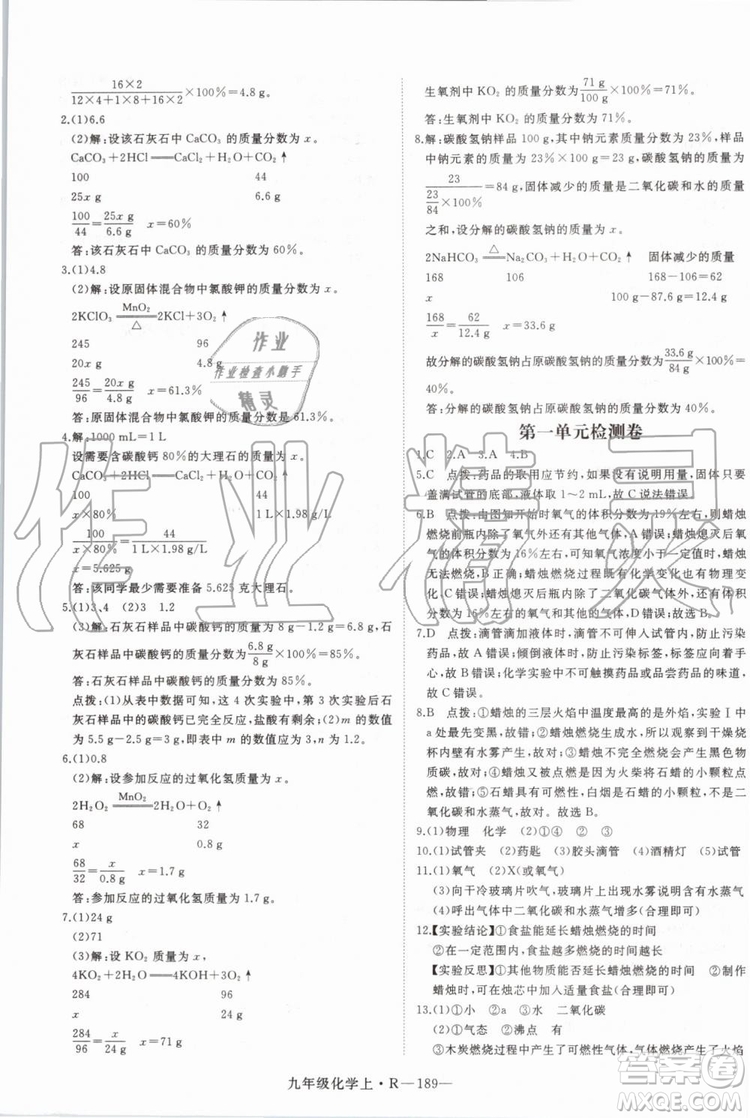 16×2
12×4+1×8+16×2 ×100%=4.8 g。
2.(1)6.6
(2)解:设该石灰石中 CaCO₃ 的质量分数为 x。
CaCO₃+2HCl══CaCl₂+H₂O+CO₂↑
100 44
25x g 6.6 g
100/44=25x g/6.6 g x=60%
答:该石灰石中 CaCO₃ 的质量分数为 60%。
3.(1)4.8
(2)解:设原固体混合物中氯酸钾的质量分数为 x。
MnO₂
2KClO₃══2KCl+3O₂↑
△
245 96
20x g 4.8 g
245/96=20x g/4.8 g x=61.3%
答:原固体混合物中氯酸钾的质量分数是 61.3%。
4.解:1000 mL=1 L
设需要含碳酸钙 80%的大理石的质量为 x。
CaCO₃+2HCl══CaCl₂+H₂O+CO₂↑
100 44
x×80% 1 L×1.98 g/L
100/(x×80%)=44/(1 L×1.98 g/L)
x=5.625 g
答:该同学最少需要准备 5.625 克大理石。
5.(1)3、4 (2)3 1.2
(3)解:石灰石样品中碳酸钙的质量为 8 g-1.2 g=6.8 g,石
灰石样品中碳酸钙的质量分数为 6.8 g/8 g ×100%=85%。
答:石灰石样品中碳酸钙的质量分数为 85%。
点拨:(1)从表中数据可知,这 4 次实验中,第 3 次实验石
灰石样品中的碳酸钙已完全反应,盐酸有剩余;(2)m 的数值
为 5.5 g-2 g=3 g,即表中 m 的数值为 1.2。
6.(1)0.8
(2)解:设参加反应的过氧化氢质量为 x。
2H₂O₂══2H₂O+O₂↑
68 32
x 0.8 g
68/32=x/0.8 g
答:参加反应的过氧化氢质量为
7.(1)24 g
(2)71
(3)解:设 KO₂ 的质量为 x。
4KO₂+2H₂O══4KOH+3O₂↑
284 96
x 24 g
284/96=x/24 g x=71 g
生氧剂中 KO₂ 的质量分数为 71 g/100 g ×100%=71%。
答:生氧剂中 KO₂ 的质量分数为 71%。
8.解:碳酸氢钠样品 100 g,其中钠元素的质量分数为 23%,样品
中钠元素的质量为 100 g×23%=23 g,碳酸氢钠的质量为
23 g/(23/84 ×100%)=84 g,固体减少的质量是二氧化碳和水的质量
之和,设分解的碳酸氢钠的质量为 x。
2NaHCO₃ △══ Na₂CO₃+H₂O+CO₂↑ 固体减少的质量
168 168-106=62
x 100 g-87.6 g=12.4 g
168/x=62/12.4 g x=33.6 g
故分解的碳酸氢钠占原碳酸氢钠的质量分数为 33.6 g/84 g ×100%=
40%。
答:分解的碳酸氢钠占原碳酸氢钠的质量分数为 40%。
第一单元检测卷
1.C 2.A 3.A 4.B
5.C 点拨:药品的取用应节约,如果没有说明用量,固体只要
盖满试管的底部,液体取 1~2 mL,故 C 说法错误。
6.B 点拨:由图知开始时氧气的体积分数为 19%左右,则蜡烛
燃烧前瓶内除了氧气外还有其他气体,A 错误;蜡烛熄灭后氧
气的体积分数为 16%左右,可知当氧气的含量低至一定量时,蜡
烛无法燃烧,B 正确;蜡烛燃烧过程中既有化学变化又有物理
变化,C 错误;蜡烛熄灭后瓶中不仅有二氧化碳气体,还有其他
气体,例如没有消耗完的氧气等,D 错误。
7.D 点拨:滴管滴加液体时,滴管不可伸入试管内,防止污染药
品,A 错误;倾倒液体时,标签应向着手心,防止污染标签,B 错
误;化学实验中不可触摸药品或品尝药品的味道,防止造成伤
害,C 错误。
8.B 点拨:①蜡烛的三层火焰中温度最高的是外焰,实验Ⅰ中
a 处最先变黑,故错;②蜡烛燃烧生成水,所以观察到干燥烧
杯内有水雾产生,故对;③蜡烛燃烧过程中既有物理变化又
有化学变化,故对;④蜡烛复燃是因为火柴将石蜡的小颗粒点
燃,不是石蜡具有可燃性,白烟是石蜡的小颗粒,不是二
氧化碳和水蒸气,故对。故选 B。
9.(1)物理 化学 (2)①④ ② ③
10.(1)试管夹 (2)药匙 (3)胶头滴管 (4)酒精灯 (5)量筒
11.(1)氧气 (2)X(或氧气)
(3)向干冷玻璃片吹气,玻璃片上出现水雾说明有水蒸气
(4)呼出气体中二氧化碳和水蒸气含量增多
12.【实验结论】①食盐能延长蜡烛燃烧的时间
②在一定范围内,食盐越多燃烧的时间越长
【实验反思】
制作蜡烛时,可在烛芯中加入适量食盐(合理即可)
13.(1)①小 ②a ③水 二氧化碳
(2)①气态 ②沸点 ③有
③木炭燃烧过程中没有气体燃烧,蜡烛燃烧有气体产生了火焰
九年级化学上·R—189—
作业
作业检查小助手
精灵
作业精灵
答案圈
MXQE.COM